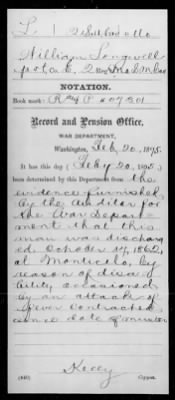 L. 2
William Longwell
NOTATION.
BOOK MARK:
Record and Pension Office,
WAR DEPARTMENT,
Washington, Feb. 20, 1895.
It has this day (Feby 20, 1895)
been determined by this Department from the
evidence furnished
by the Auditor for
the War Depart-
ment that this
man was discharg-
ed October 17, 1862,
at Monticello, by
reason of disa-
bility occasioned
by an attack of
fever contracted
since date of
Copyist.